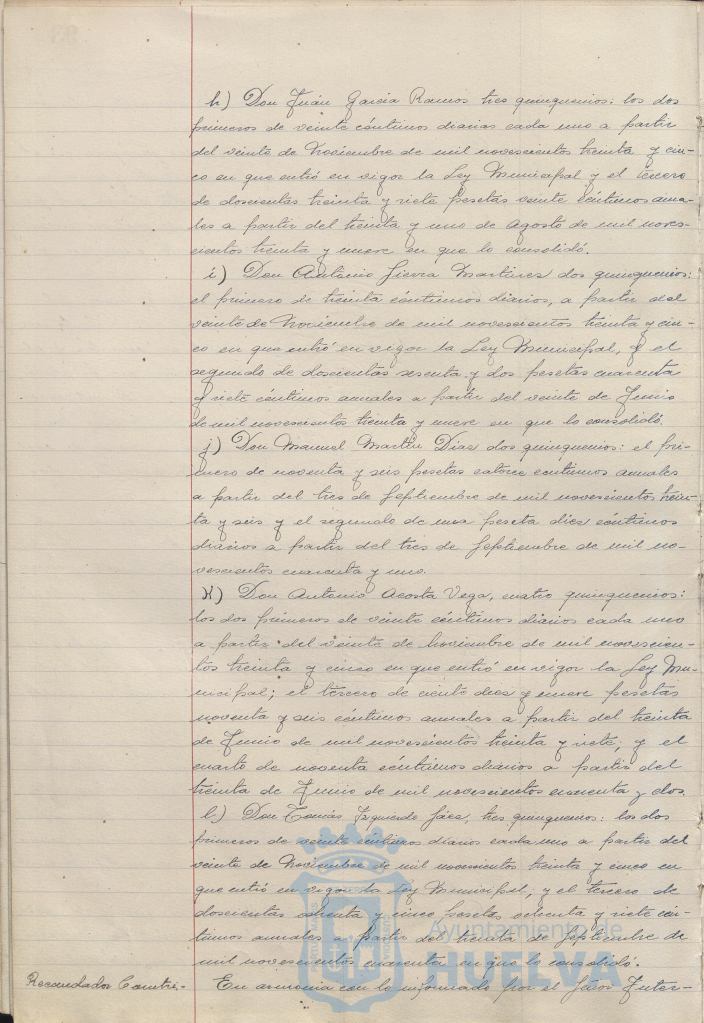 h) Don Juán García Ramos tres quinquenios: los dos
primeros de veinte céntimos diarios cada uno a partir
del veinte de Noviembre de mil novescientos treinta y cin-
co en que entró en vigor la Ley Municipal y el tercero
de doscientas treinta y siete pesetas veinte céntimos anua-
les a partir del treinta y uno de Agosto de mil noves-
cientos treinta y nueve en que lo consolidó.
i) Don Antonio Sierra Martínez dos quinquenios:
el primero de treinta céntimos diarios, a partir del
veinte de Noviembre de mil novescientos treinta y cin-
co en que entró en vigor la Ley Municipal, y el
segundo de doscientas sesenta y dos pesetas cuarenta
y siete céntimos anuales a partir del veinte de Junio
de mil novescientos treinta y nueve en que lo consolidó.
j) Don Manuel Martín Días dos quinquenios: el pri-
mero de noventa y seis pesetas catorce céntimos anuales
a partir del tres de Septiembre de mil novescientos trein-
ta y seis y el segundo de una peseta diez céntimos
diarios a partir del tres de Septiembre de mil no-
vescientos cuarenta y uno.
K) Don Antonio Acosta Vega, cuatro quinquenios:
los dos primeros de veinte céntimos diarios cada uno
a partir del veinte de Noviembre de mil novescien-
tos treinta y cinco en que entró en vigor la Ley Mu-
nicipal; el tercero de ciento diez y nueve pesetas
noventa y seis céntimos anuales a partir del treinta
de Junio de mil novescientos treinta y siete, y el
cuarto de noventa céntimos diarios a partir del
treinta de Junio de mil novescientos cuarenta y dos.
l) Don Tomás Izquierdo Sáez, tres quinquenios: los dos
primeros de veinte céntimos diarios cada uno a partir del
veinte de Noviembre de mil novescientos treinta y cinco en
que entró en vigor la Ley Municipal, y el tercero de
doscientas ochenta y cinco pesetas ochenta y siete cén-
timos anuales a partir del treinta de Septiembre de
mil novescientos cuarenta en que lo consolidó.
Recaudador Contri-
En armonía con lo informado por el Señor Inter-
Ayuntamiento de
HUELVA